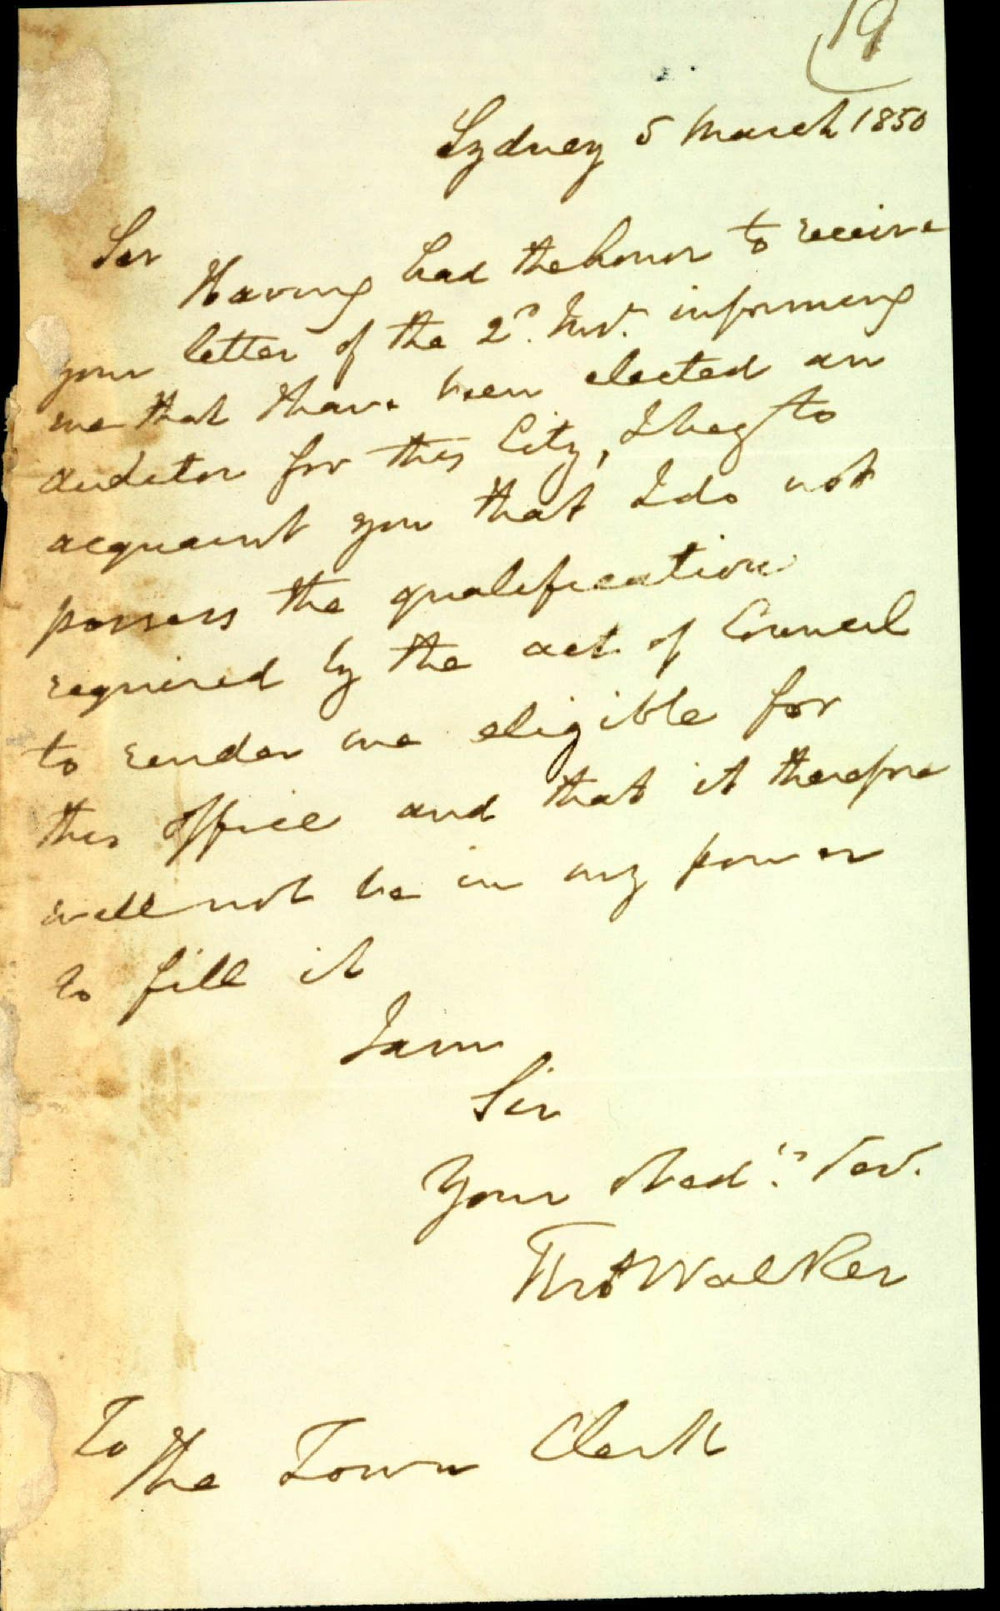 19
Sydney 5 March 1850
Sir
Having had the honor to receive
your letter of the 2d. Inst. informing
me that I have been elected an
auditor for this City, I beg to
acquaint you that I do not
possess the qualification
required by the act of Council
to render me eligible for
this office and that it therefore
will not be in my power
to fill it
I am
Sir
Your obedt. Ser.
Thos Walker
To
The Town Clerk